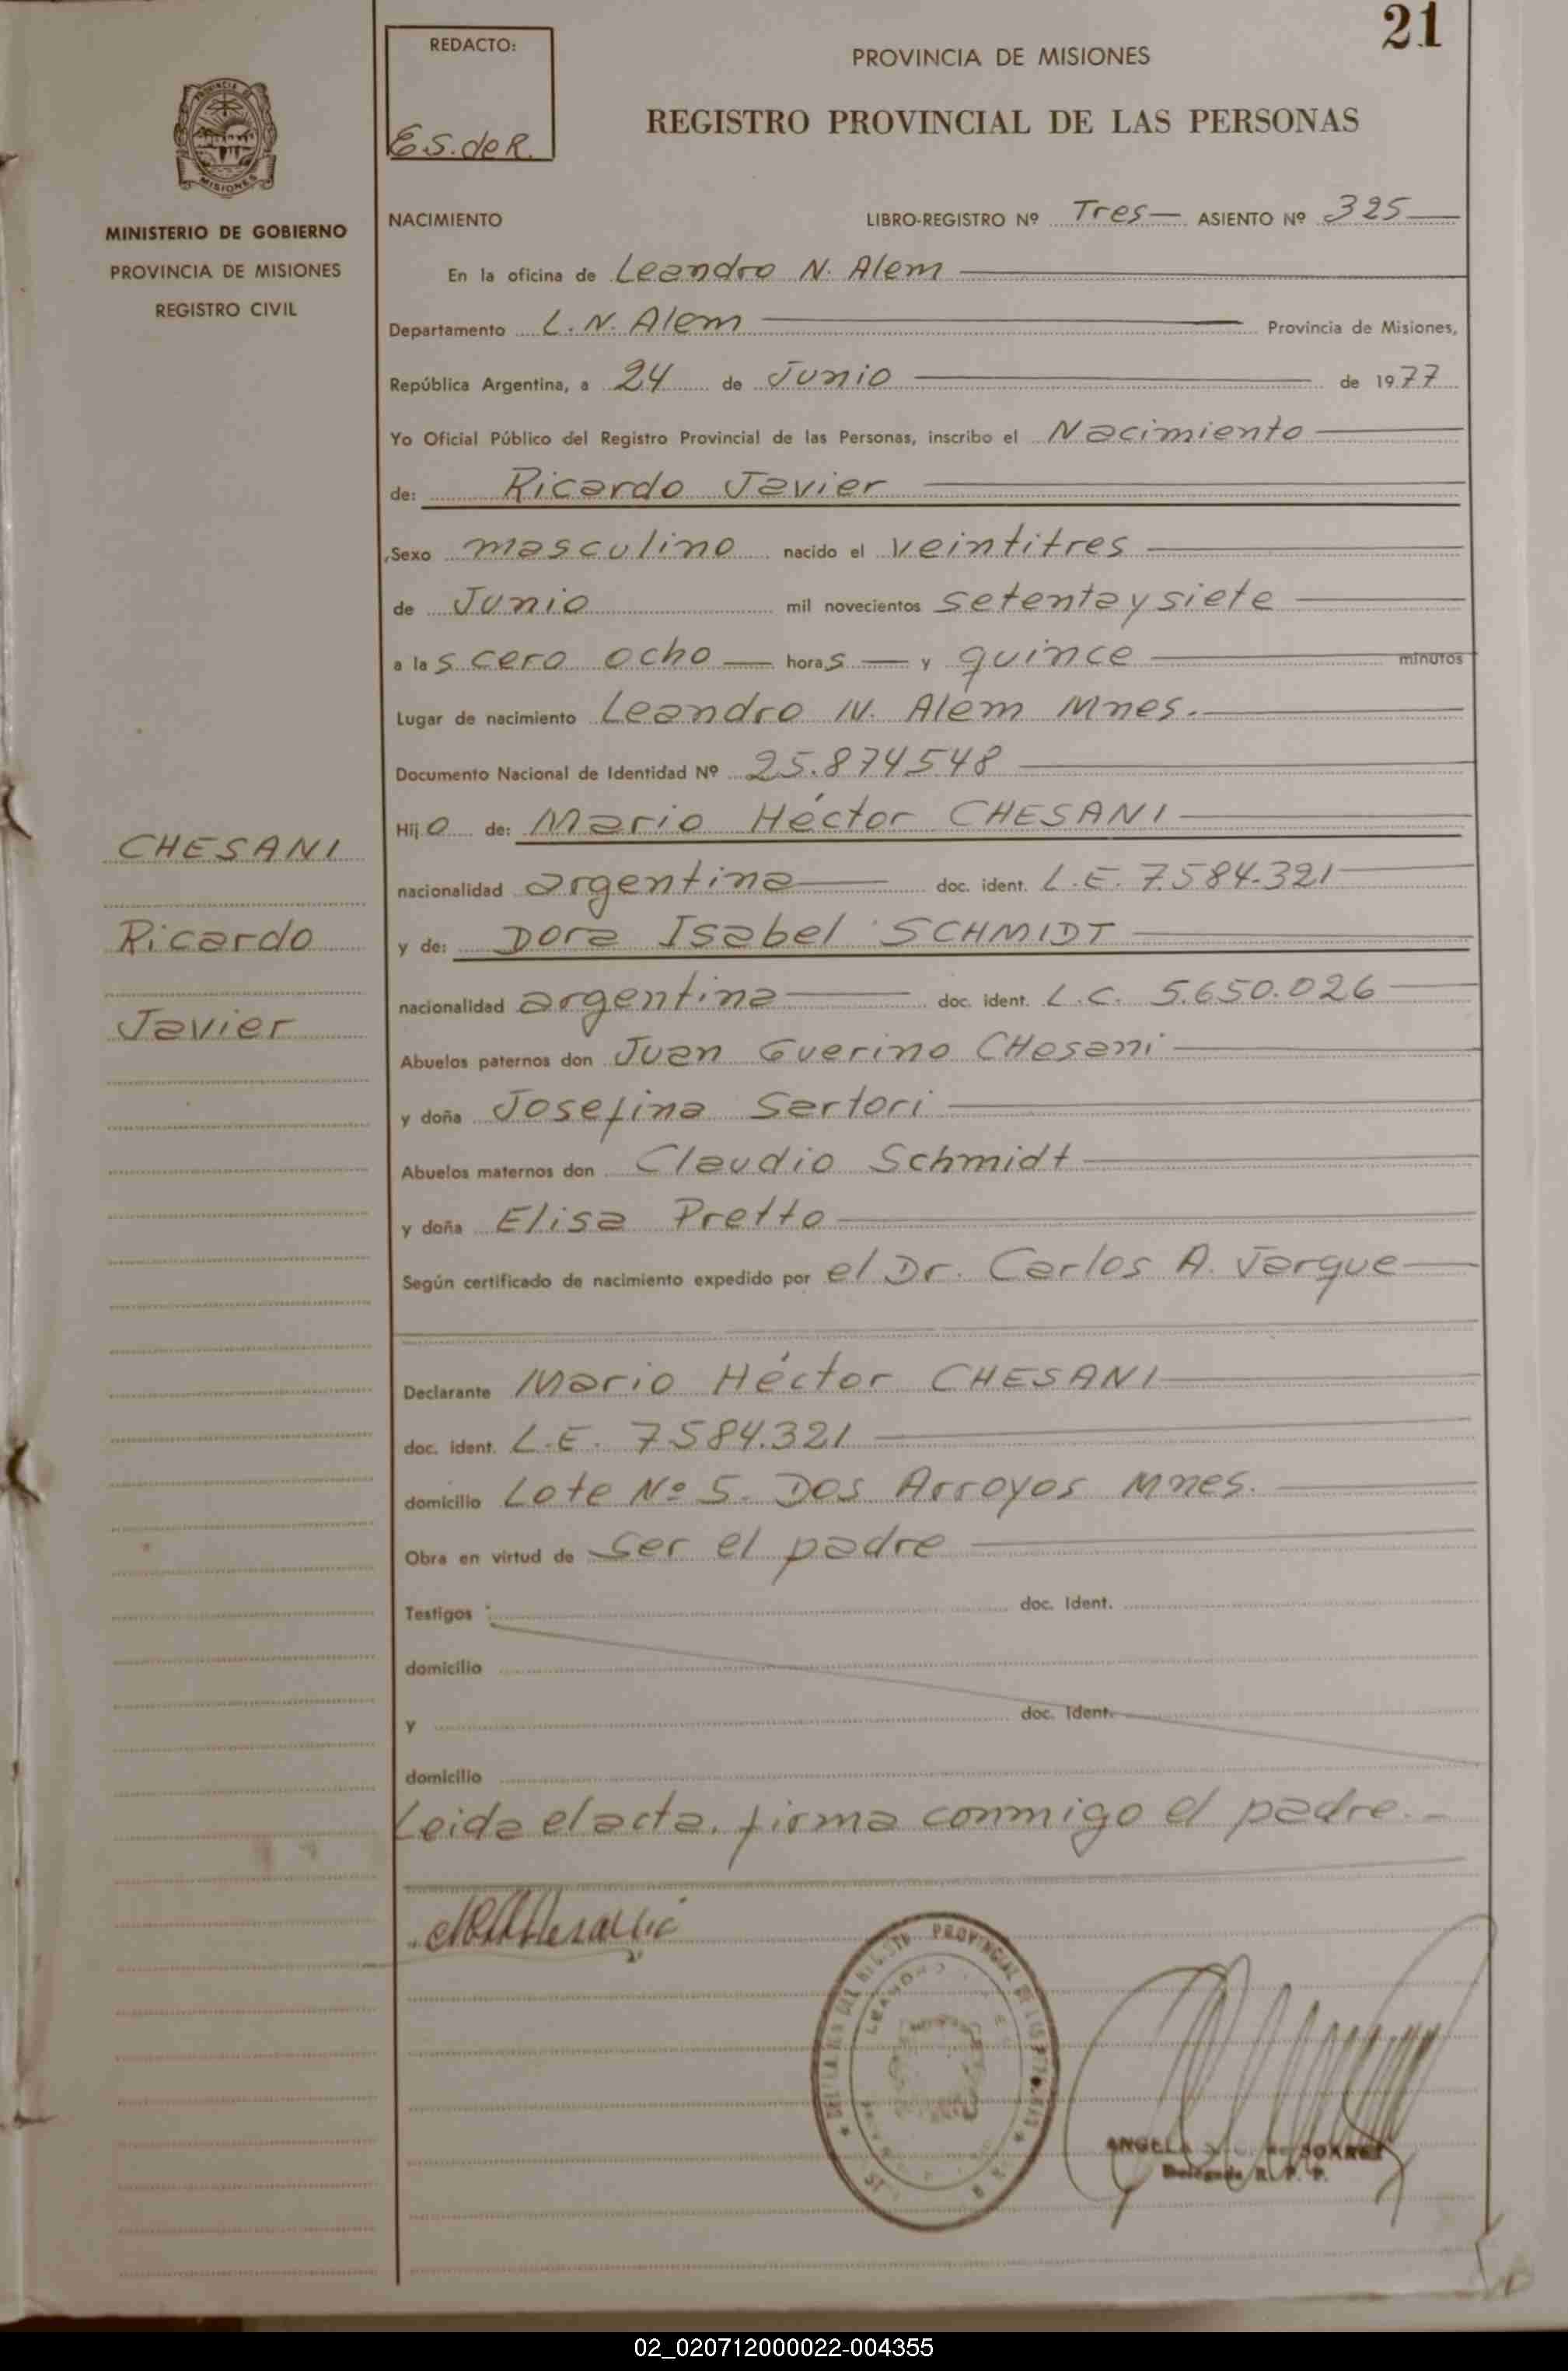 21
REDACTO:
E.S. de R.
PROVINCIA DE MISIONES
REGISTRO PROVINCIAL DE LAS PERSONAS
PROVINCIA DE
MISIONES
MINISTERIO DE GOBIERNO
PROVINCIA DE MISIONES
REGISTRO CIVIL
NACIMIENTO LIBRO-REGISTRO Nº Tres — ASIENTO Nº 325
En la oficina de Leandro N. Alem
Departamento L. N. Alem Provincia de Misiones,
República Argentina, a 24 de Junio de 1977
Yo Oficial Público del Registro Provincial de las Personas, inscribo el Nacimiento
de: Ricardo Javier
Sexo masculino nacido el veintitres
de Junio mil novecientos setenta y siete
a las cero ocho — horas — y quince minutos
Lugar de nacimiento Leandro N. Alem Mnes.
Documento Nacional de Identidad Nº 25.874548
Hijo de: Mario Héctor CHESANI
nacionalidad argentina doc. ident. L.E. 7.584.321
y de: Dora Isabel SCHMIDT
nacionalidad argentina doc. ident. L.C. 5.650.026
Abuelos paternos don Juan Guerino CHesani
y doña Josefina Sartori
Abuelos maternos don Claudio Schmidt
y doña Elisa Pretto
Según certificado de nacimiento expedido por el Dr. Carlos A. Jargue
Declarante Mario Héctor CHESANI
doc. ident. L.E. 7584.321
domicilio Lote Nº 5. Dos Arroyos Mnes.
Obra en virtud de ser el padre
Testigos doc. Ident.
domicilio
y doc. Ident.
domicilio
Leida el acta, firma conmigo el padre.-
CHESANI
Ricardo
Javier
PROVINCIAL DE LAS
LEANDRO
ANGELA SOAREZ
Delegada R. P. P.
02_020712000022-004355